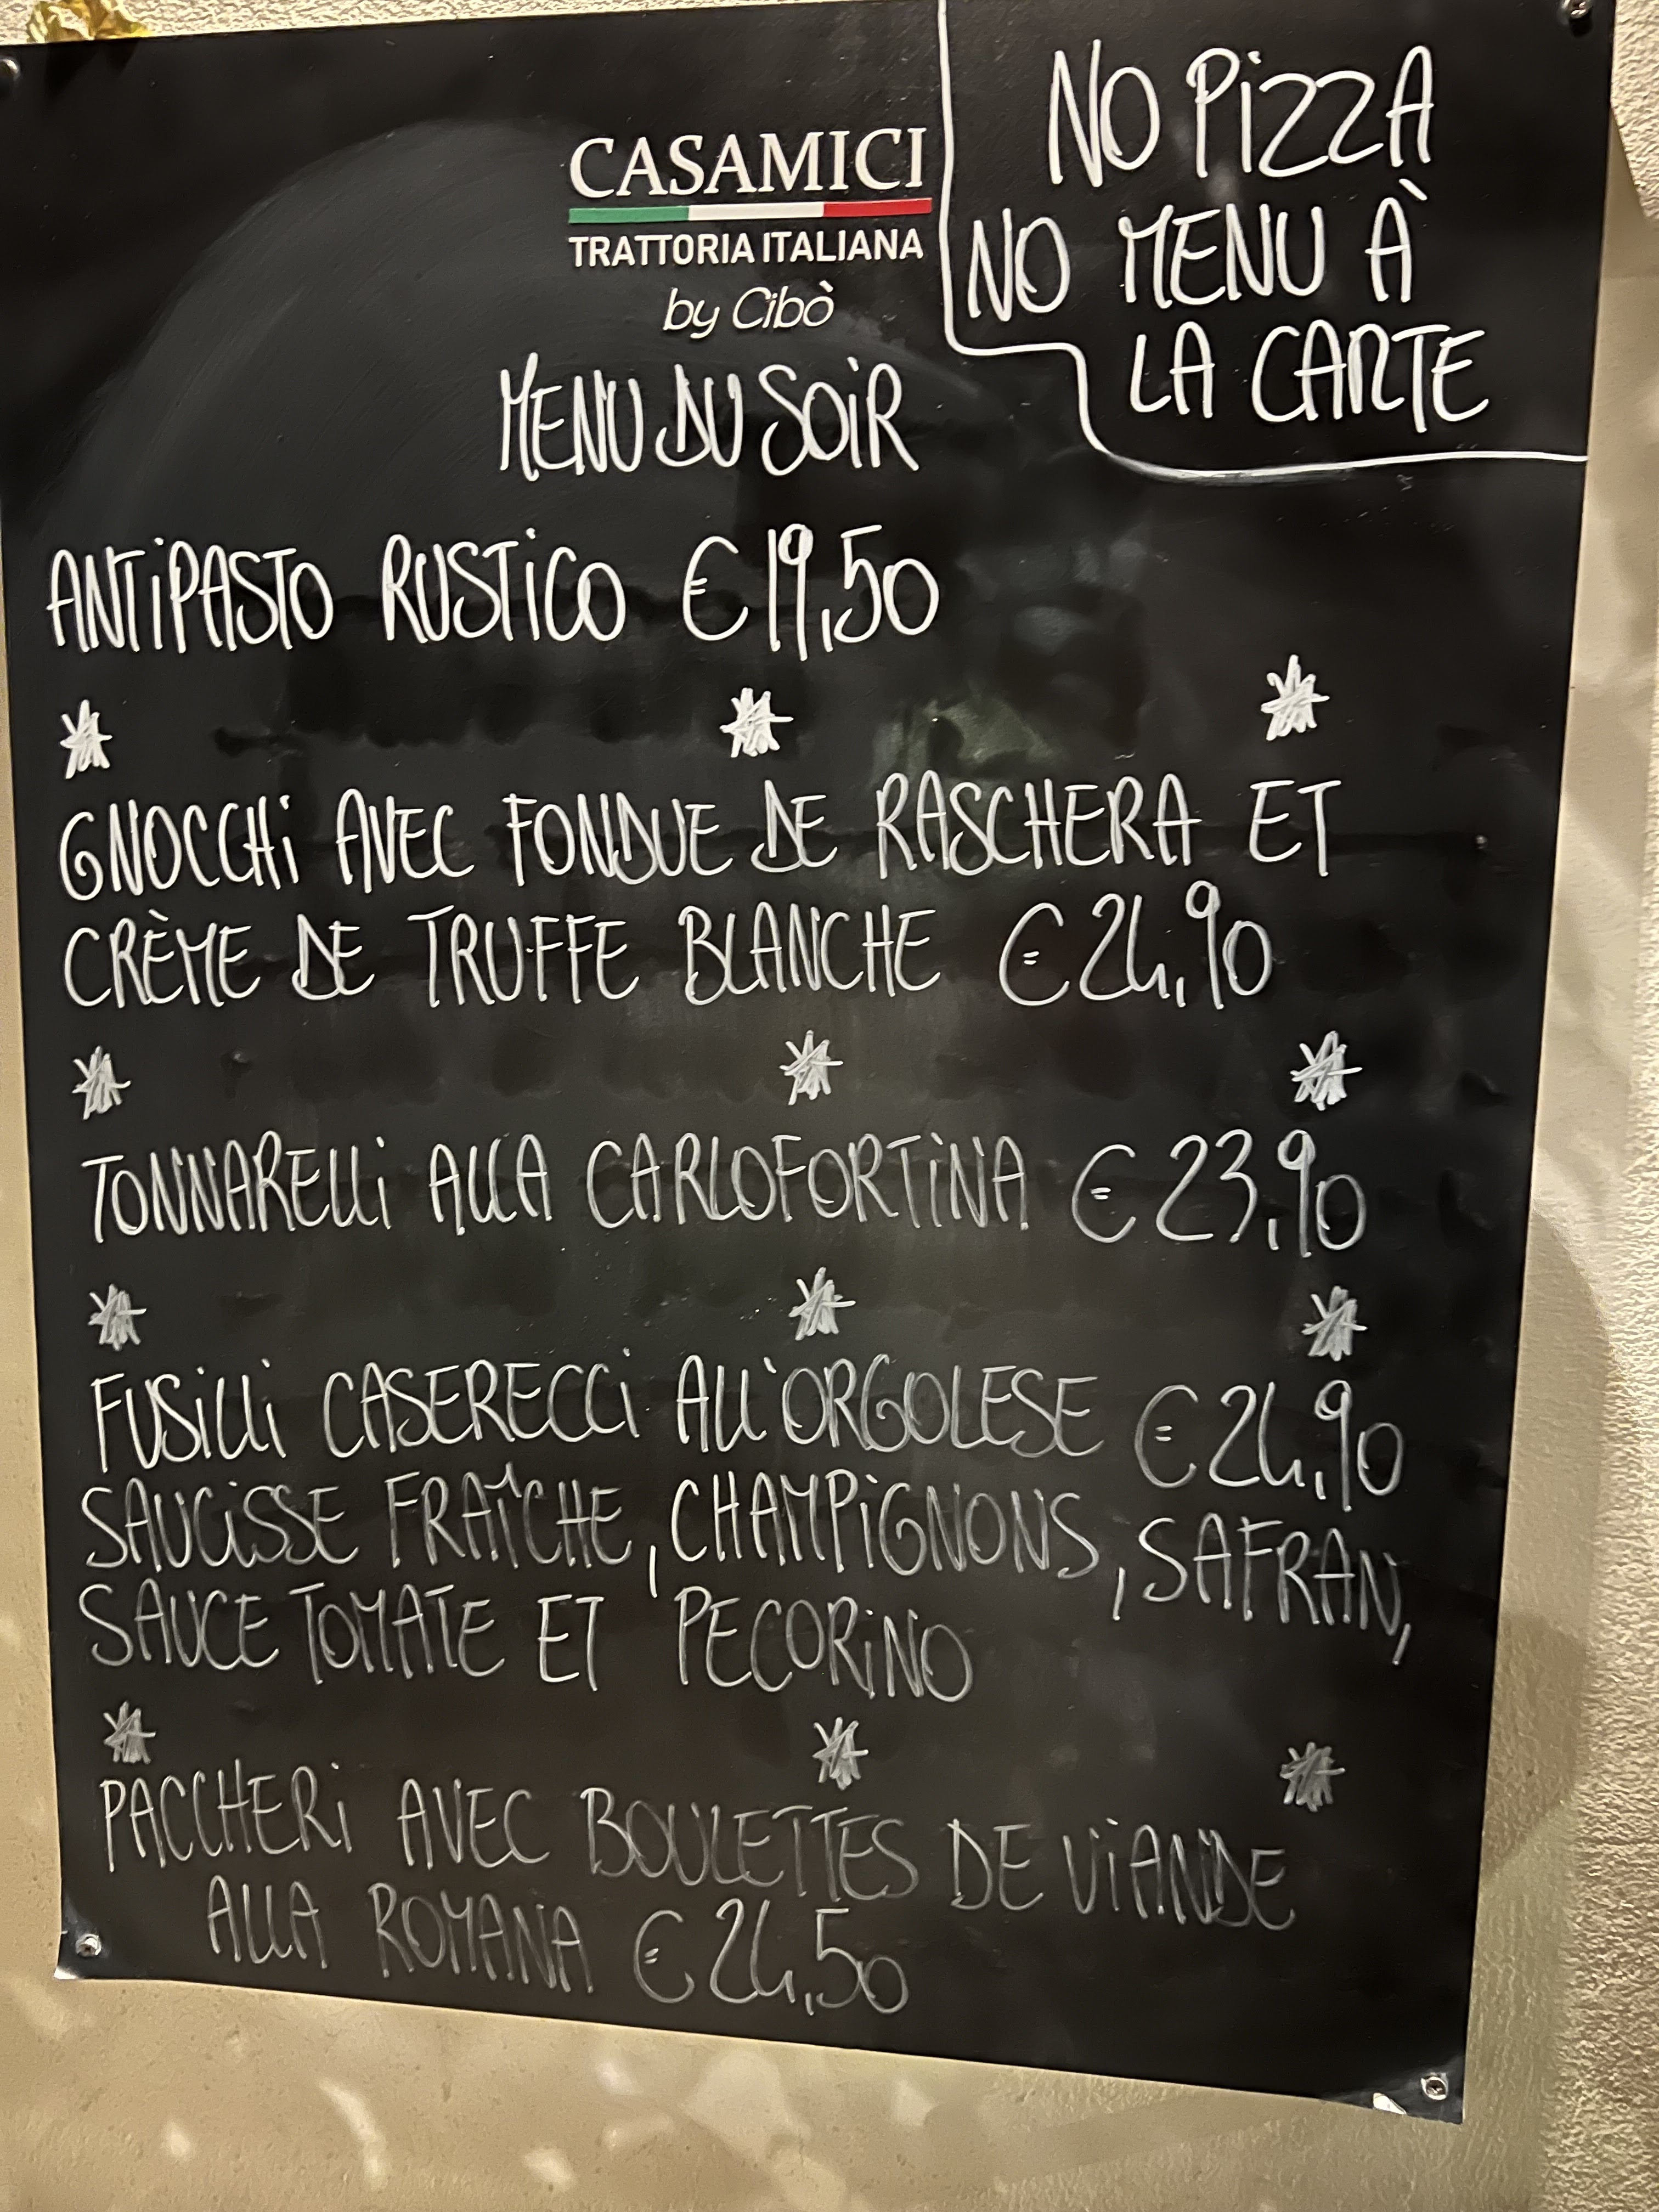 CASAMICI
TRATTORIA ITALIANA
by Cibò
NO PiZZA
NO MENU À
LA CARTE
MENU DU SOiR
ANTiPASTO RUSTiCO €19,50
GNOCCHi AVEC FONDUE DE RASCHERA ET
CRÈME DE TRUFFE BLANCHE €24,90
TONNARELLi ALLA CARLOFORTiNA €23,90
FUSiLLi CASERECCi ALL'ORGOLESE €24,90
SAUCiSSE FRAÎCHE, CHAMPiGNONS, SAFRAN,
SAUCE TOMATE ET PECORiNO
PACCHERi AVEC BOULETTES DE ViANDE
ALLA ROMANA €24,50